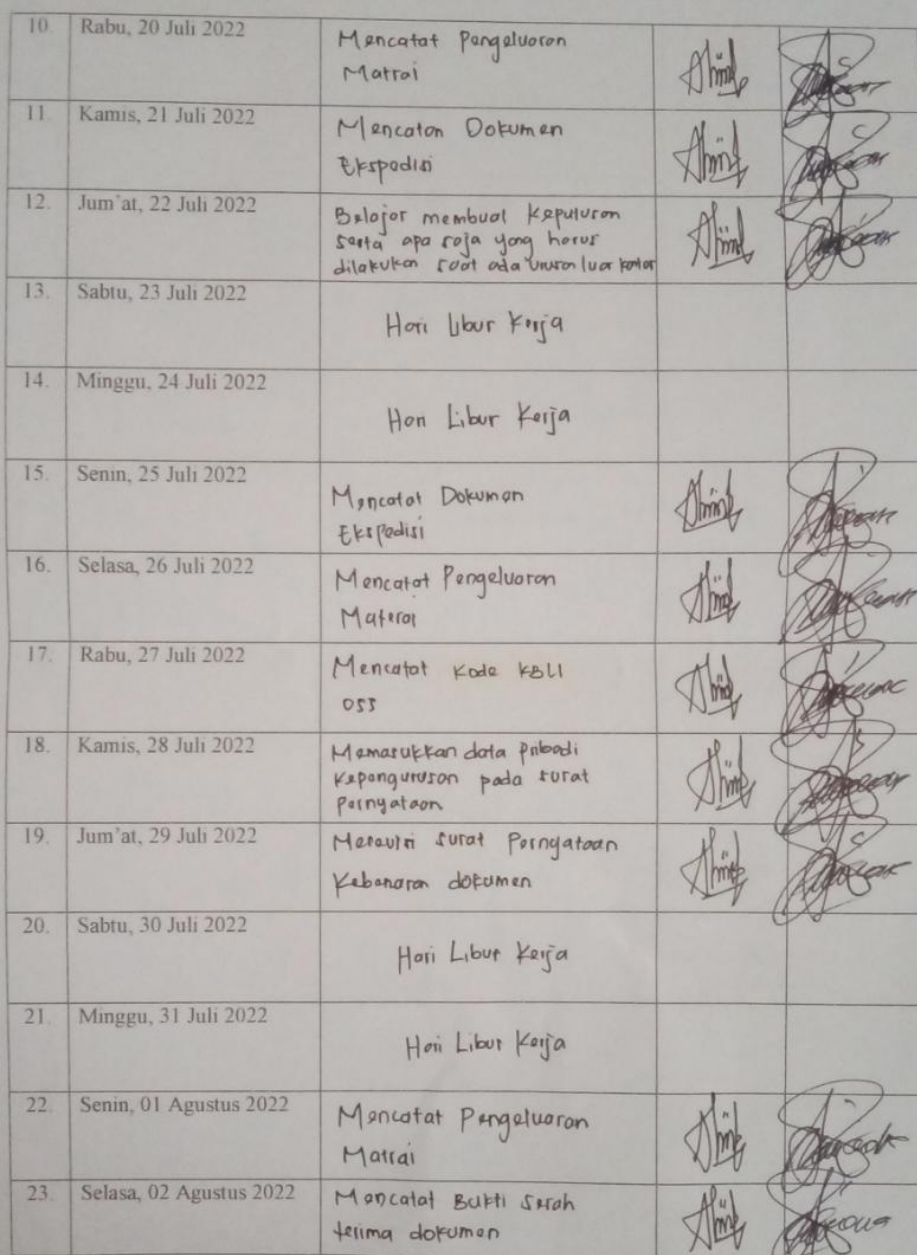 10. Rabu, 20 Juli 2022 Mencatat Pengeluaran
Matrai
11. Kamis, 21 Juli 2022 Mencatan Dokumen
Ekspedisi
12. Jum'at, 22 Juli 2022 Belajar membuat Keputusan
serta apa saja yang harus
dilakukan saat ada urusan luar kantor
13. Sabtu, 23 Juli 2022
Hari Libur Kerja
14. Minggu, 24 Juli 2022
Hari Libur Kerja
15. Senin, 25 Juli 2022
Mencatat Dokumen
Ekspedisi
16. Selasa, 26 Juli 2022 Mencatat Pengeluaran
Materai
17. Rabu, 27 Juli 2022 Mencatat Kode KBLI
OSS
18. Kamis, 28 Juli 2022 Memasukkan data Pribadi
Kepengurusan pada surat
pernyataan
19. Jum'at, 29 Juli 2022 surat Pernyataan
Kebenaran dokumen
20. Sabtu, 30 Juli 2022
Hari Libur Kerja
21. Minggu, 31 Juli 2022
Hari Libur Kerja
22. Senin, 01 Agustus 2022 Mencatat Pengeluaran
Matrai
23. Selasa, 02 Agustus 2022 Mencatat Bukti Serah
terima dokumen